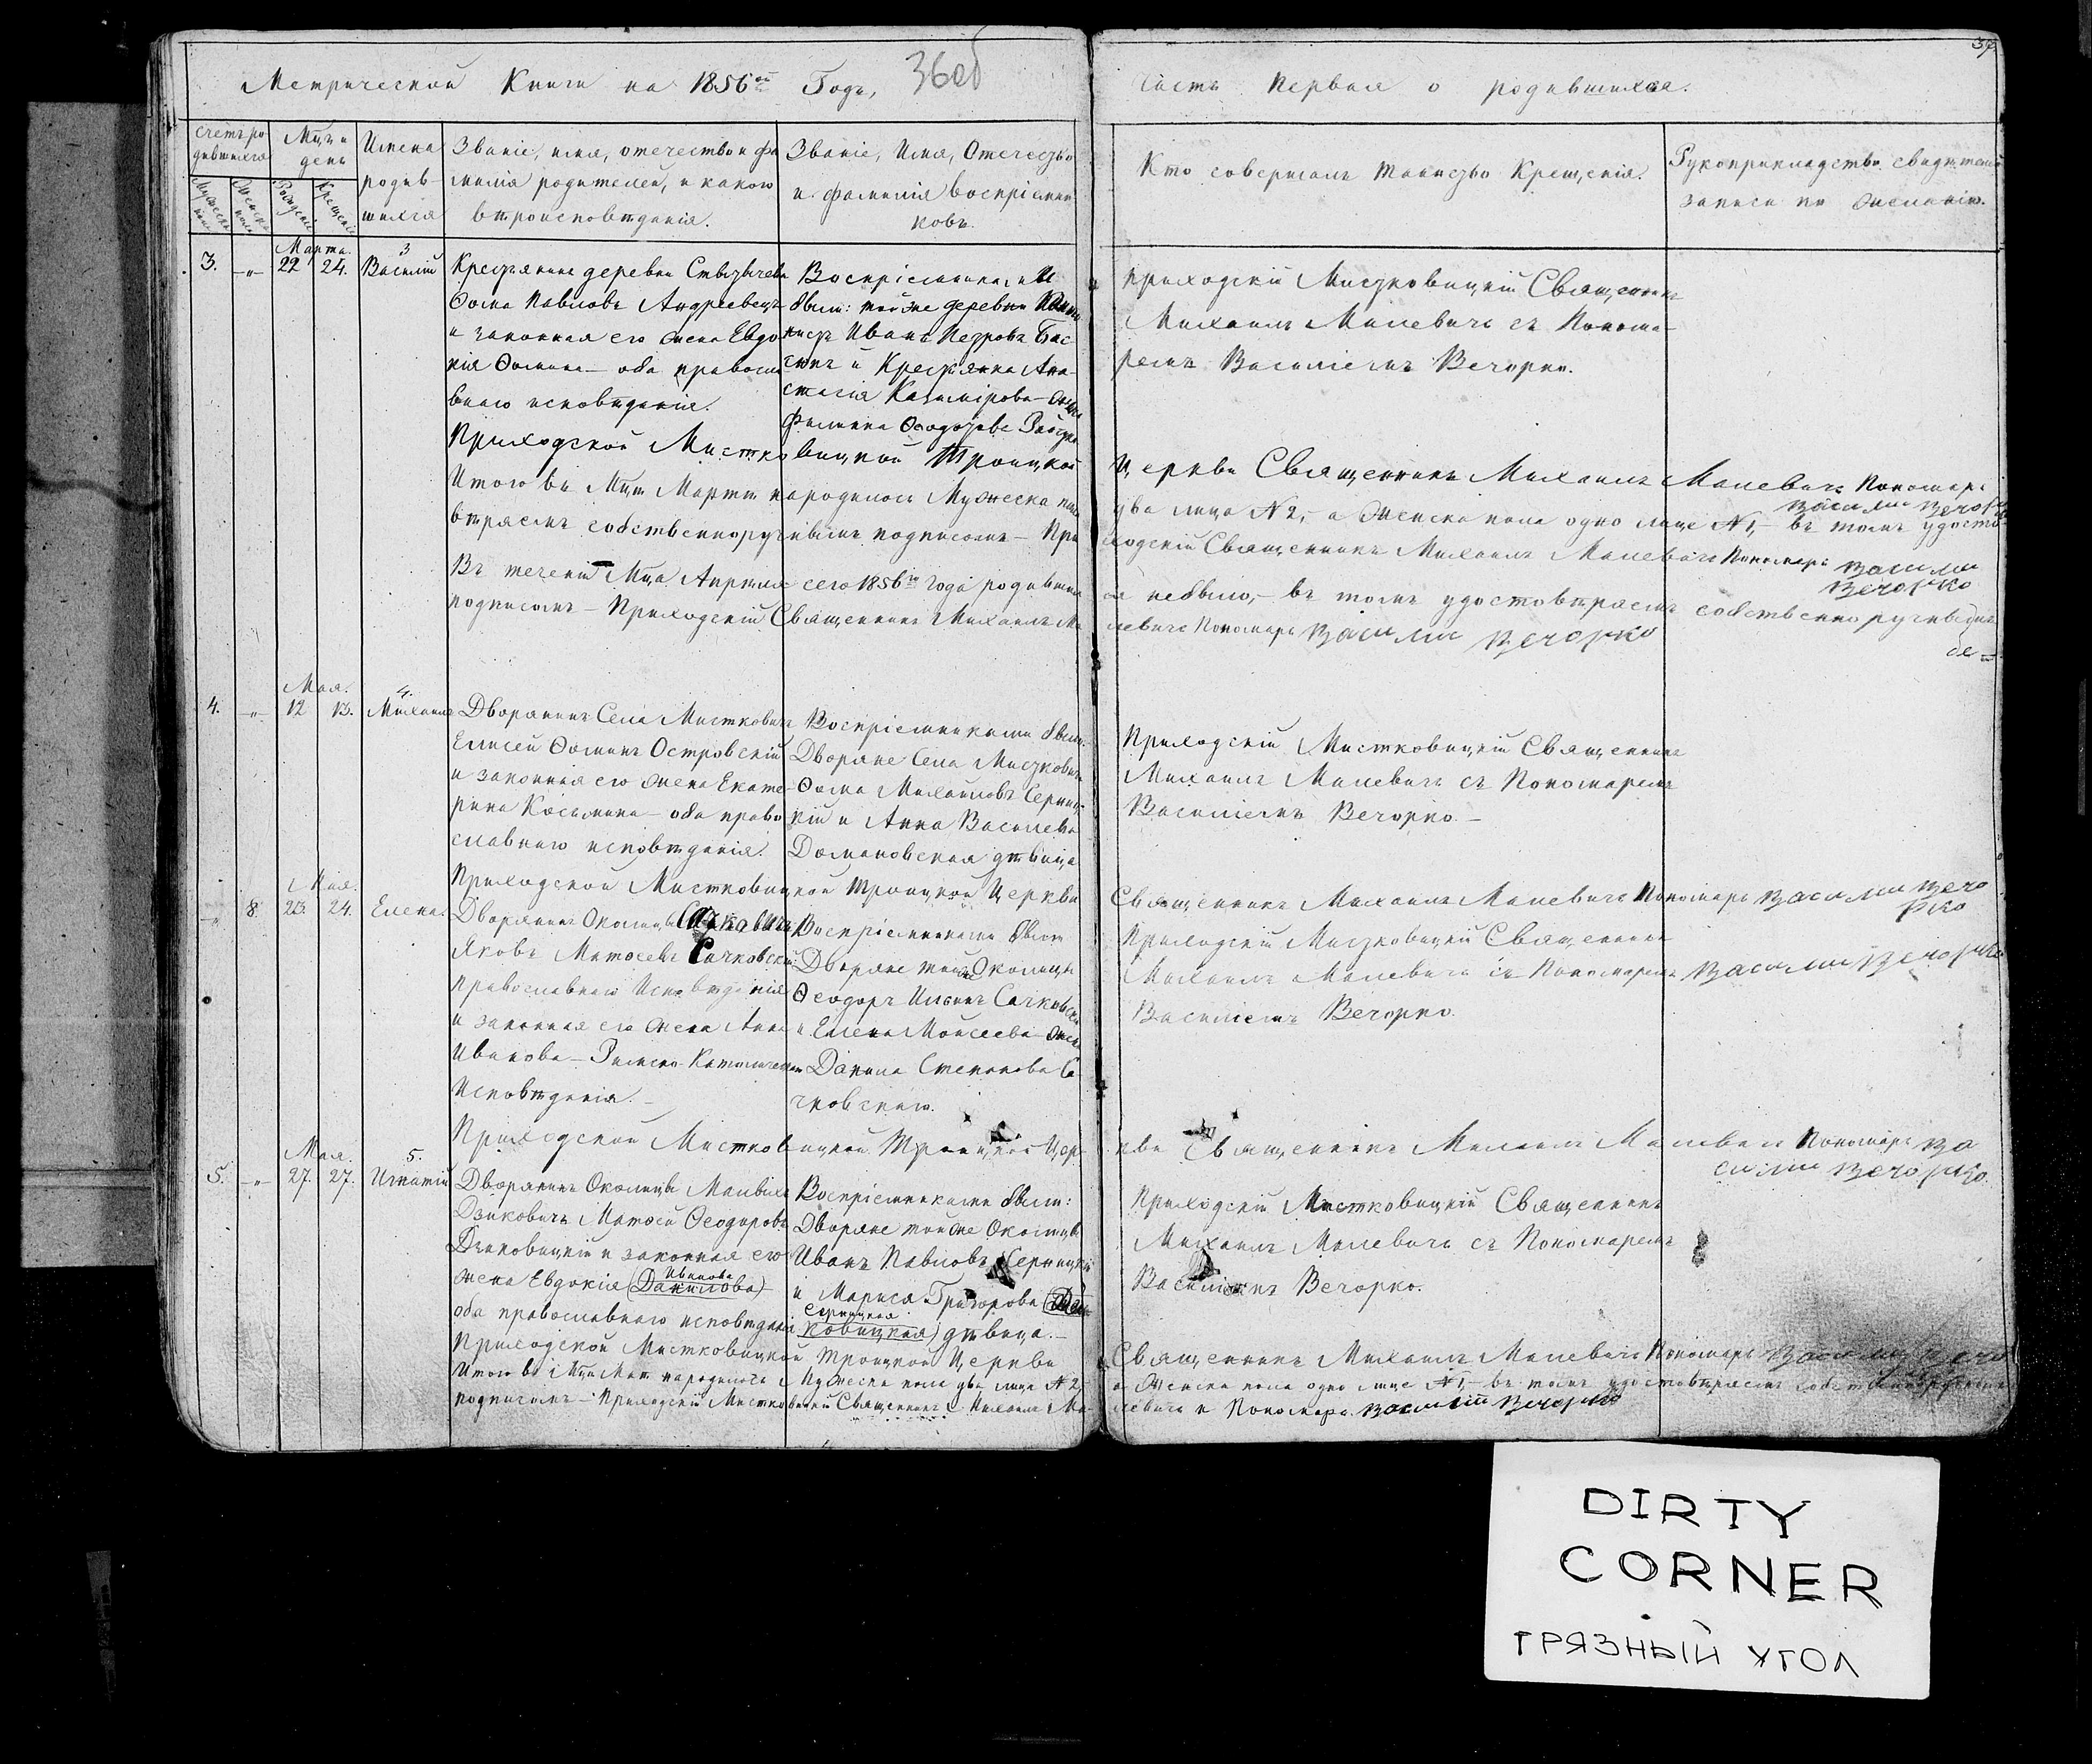 Метрической Книги на 1856ой Годъ,
36об
Часть первая о родившихся.
37
Счетъ родившихся
Мужеска пола
Женска пола
Мцъ и день
Рожденія
Крещенія
Имена родив-
шихся
Званіе, имя, отечество и фа
милія родителей, и какого
вѣроисповѣданія.
Званіе, Имя, Отечество
и фамилія Воспріемни
ковъ.
Кто совершалъ таинство Крещенія.
Рукоприкладство свидѣтелей
записи по желанію.
Марта.
3.
22 24.
3
Василій
Крестьянинъ деревни
Ѳома Павловъ Андреевецъ
и законная его жена Евдо
кія Ѳомина – оба правосла
внаго исповѣданія.
Воспріемниками
были: той же деревни
Иванъ Петровъ
и Крестьянка Ана-
стасія Казимірова – жена
Ѳеодорова
Приходскій Мистковицкій Священникъ
Михаилъ Малевичъ съ Понома-
ремъ Василіемъ Вечорко.
Приходской Мистковицкой Троицкой Церкви Священникъ Михаилъ Малевичъ Пономарь
Василій Вечорко
Итого въ Мцѣ Мартѣ народилось Мужеска пола два лица № 2, – а Женска пола одно лице № 1, – въ томъ удосто-
вѣряемъ собственноручнымъ подписомъ – Приходскій Священникъ Михаилъ Малевичъ Пономарь Василій
Вечорко
Въ теченіи Мца Апрѣля сего 1856го года родившихся не было, – въ томъ удостовѣряемъ собственноручнымъ
подписомъ – Приходскій Священникъ Михаилъ Малевичъ Пономарь Василій Вечорко
Мая.
4.
12 13.
4.
Михаилъ
Дворянинъ Села Мистковичъ
Елисей Ѳоминъ Островскій
и законная его жена Екате-
рина Косьмина – оба право
славнаго исповѣданія.
Воспріемниками были:
Дворяне Села Мистковичъ
Ѳома Михайловъ Серниц-
кій и Анна Васильева
Домановская дѣвица
Приходскій Мистковицкій Священникъ
Михаилъ Малевичъ съ Пономаремъ
Василіемъ Вечорко –
Приходской Мистковицкой Троицкой Церкви Священникъ Михаилъ Малевичъ Пономарь Василій Вечо
рко
Мая.
8.
23. 24.
Елена.
Дворянинъ Околицы Сачковичъ
Яковъ Матѳеевъ Сачковскій
Православнаго Исповѣданія
и законная его жена Анна
Иванова – Римско-Католическаго
Исповѣданія. –
Воспріемниками были
Дворяне той же Околицы
Ѳеодоръ Ильинъ Сачковскій
и Елена Моисеева – жена
Данила Степанова Са
чковскаго.
Приходскій Мистковицкій Священникъ
Михаилъ Малевичъ съ Пономаремъ
Василіемъ Вечорко.
Василій Вечорко
Приходской Мистковицкой Троицкой Церкви Священникъ Михаилъ Малевичъ Пономарь Ва
силій Вечорко
Мая.
5.
27. 27.
5.
Игнатій
Дворянинъ Околицы
Матѳей Ѳеодоровъ
и законная его
жена Евдокія (Данилова)
Иванова
оба православнаго исповѣданія
Воспріемниками были:
Дворяне той же Околицы
Иванъ Павловъ Серницкій
и Марися Григорова
Серницкая
ковицкая) дѣвица. –
Приходскій Мистковицкій Священникъ
Михаилъ Малевичъ съ Пономаремъ
Василіемъ Вечорко.
Приходской Мистковицкой Троицкой Церкви Священникъ Михаилъ Малевичъ Пономарь Василій Вечо
Итого въ Мцѣ Маѣ народилось Мужеска пола два лица № 2, а Женска пола одно лице № 1, – въ томъ удостовѣряемъ собственноручнымъ
подписомъ – Приходскій Мистковицкій Священникъ Михаилъ Малевичъ и Пономарь Василій Вечорко
DIRTY
CORNER
ГРЯЗНЫЙ УГОЛ